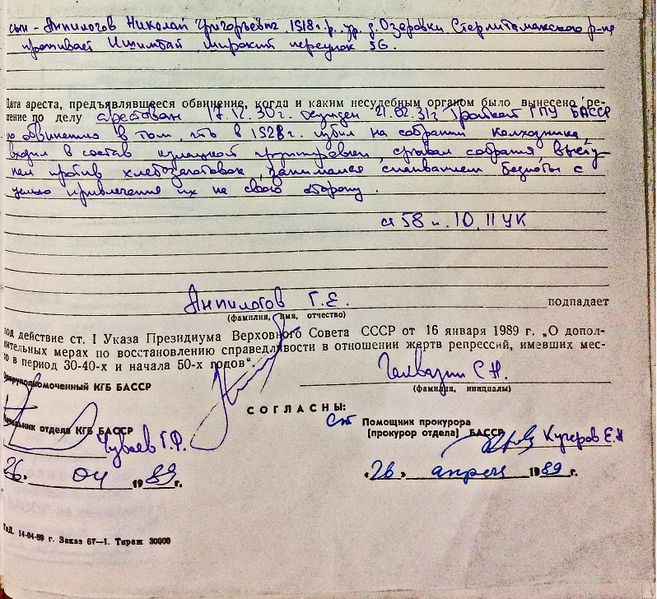 сын - Анпилогов Николай Григорьевич 1918 г.р. ур. д. Озеровки Стерлитамакского р-на
проживает Ишимбай, Широкий переулок 36.
Дата ареста, предъявлявшееся обвинение, когда и каким несудебным органом было вынесено ре-
шение по делу арестован 17.12.30г. осужден 21.02.31г Тройкой ГПУ БАССР
по обвинению в том, что в 1928г. избил на собрании колхозника
входил в состав кулацкой группировки, срывал собрания, высту
пал против хлебозаготовок, занимался спаиванием бедноты с
целью привлечения их на свою сторону.
ст 58 п. 10, 11 УК
Анпилогов Г.Е. подпадает
(фамилия, имя, отчество)
под действие ст. I Указа Президиума Верховного Совета СССР от 16 января 1989 г. „О допол-
нительных мерах по восстановлению справедливости в отношении жертв репрессий, имевших мес-
то в период 30-40-х и начала 50-х годов".
Оперуполномоченный КГБ БАССР
С.Н.
(фамилия, инициалы)
СОГЛАСНЫ:
Начальник отдела КГБ БАССР
Чуваев Г.Ф.
ст Помощник прокурора
(прокурор отдела) БАССР Кучеров Е.Н
26. 04 1989 г.
„26„ апреля 1989 г.
14-04-89 г. Заказ 67—1. Тираж 30000